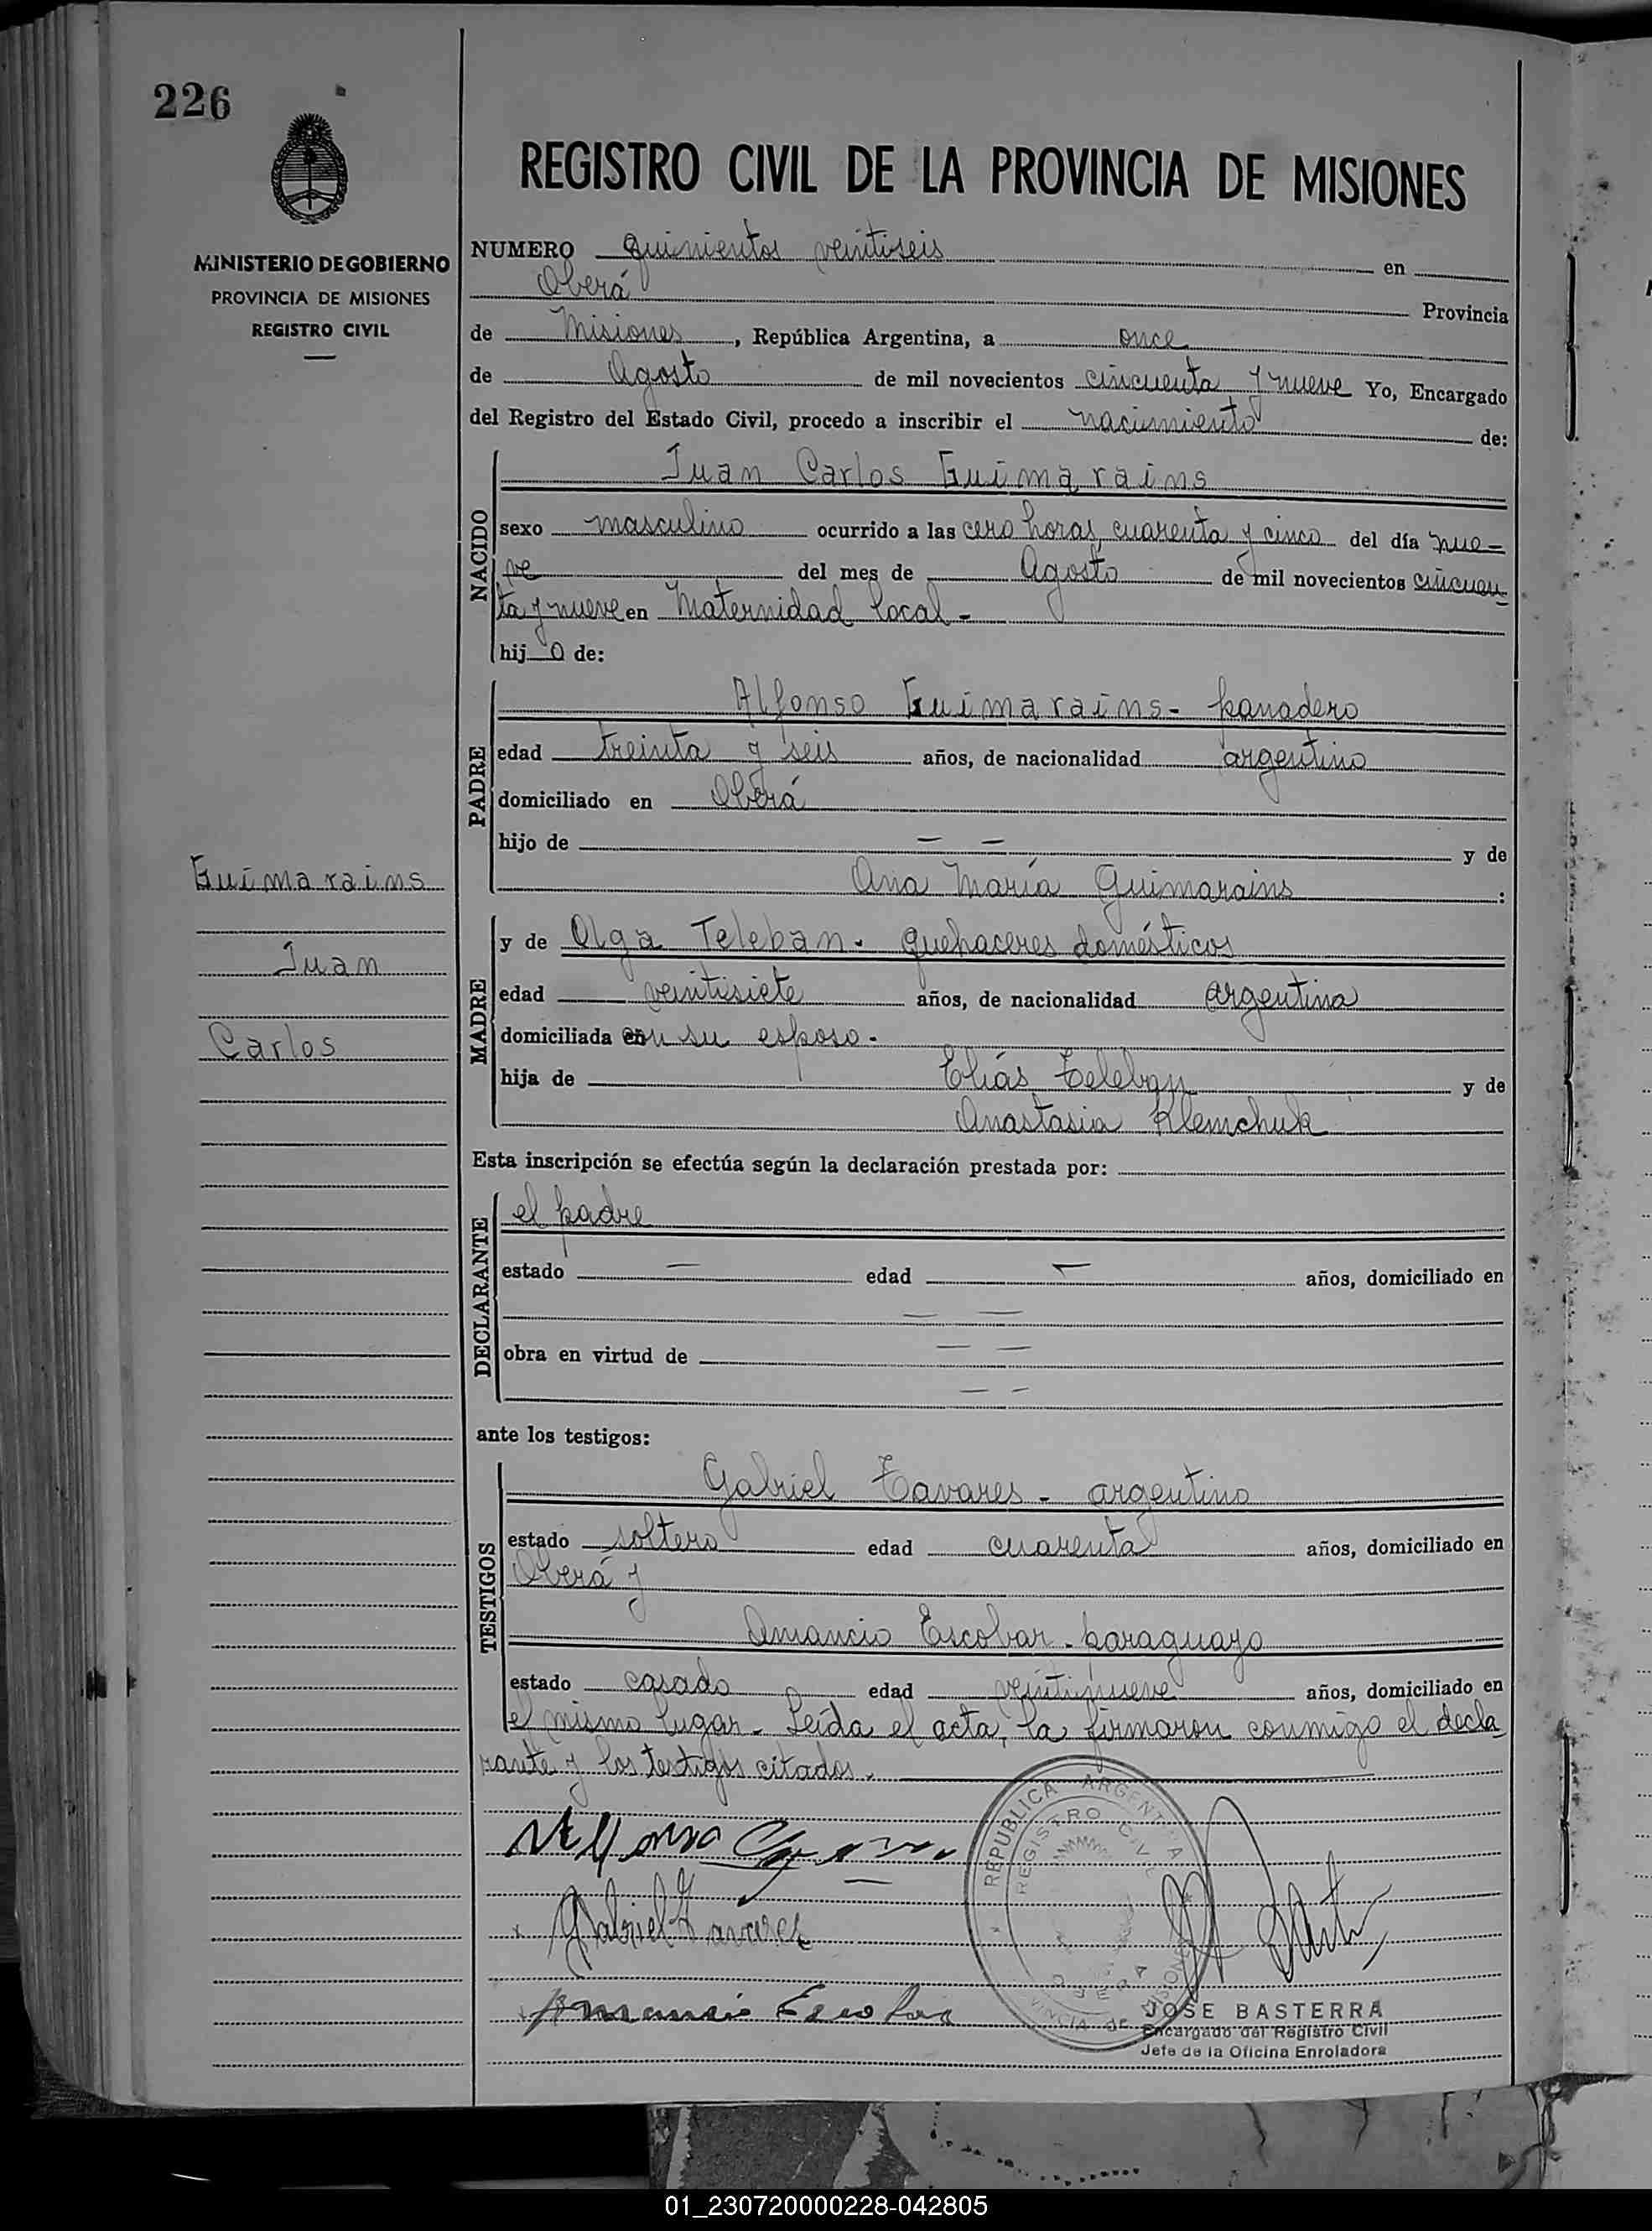 226
MINISTERIO DE GOBIERNO
PROVINCIA DE MISIONES
REGISTRO CIVIL
REGISTRO CIVIL DE LA PROVINCIA DE MISIONES
NUMERO quinientos veintiseis en
Oberá Provincia
de Misiones, República Argentina, a once
de Agosto de mil novecientos cincuenta y nueve Yo, Encargado
del Registro del Estado Civil, procedo a inscribir el nacimiento de:
NACIDO
Juan Carlos Guimarains
sexo masculino ocurrido a las cero horas, cuarenta y cinco del día nue-
ve del mes de Agosto de mil novecientos cincuen
ta y nueve en Maternidad local-
hijo de:
PADRE
Alfonso Guimarains- panadero
edad treinta y seis años, de nacionalidad argentino
domiciliado en Oberá
hijo de — — y de
Ana María Guimarains :
Guimarains
Juan
Carlos
MADRE
y de Olga Teleban- quehaceres domésticos
edad veintisiete años, de nacionalidad argentina
domiciliada con su esposo-
hija de Elías Teleban y de
Anastasia Klemchuk
Esta inscripción se efectúa según la declaración prestada por:
DECLARANTE
el padre
estado — edad — años, domiciliado en
— —
obra en virtud de — —
— —
ante los testigos:
TESTIGOS
Gabriel Tavares - argentino
estado soltero edad cuarenta años, domiciliado en
Oberá y
Amancio Escobar - paraguayo
estado casado edad veintinueve años, domiciliado en
el mismo lugar- Leída el acta, la firmaron conmigo el decla
rante y los testigos citados.-
Gabriel Tavares
Amancio Escobar
REPUBLICA ARGENTINA
REGISTRO CIVIL
JOSE BASTERRA
Encargado del Registro Civil
Jefe de la Oficina Enroladora
01_230720000228-042805